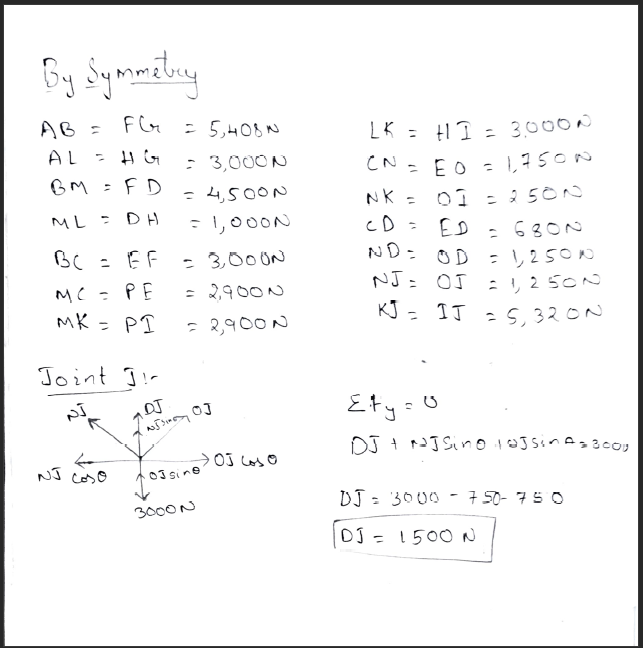 By Symmetry
AB = FG = 5,408N
AL = HG = 3,000N
BM = FD = 4,500N
ML = DH = 1,000N
BC = EF = 3,000N
MC = PE = 2,900N
MK = PI = 2,900N
LK = HI = 3,000N
CN = EO = 1,750N
NK = OI = 250N
CD = ED = 680N
ND = OD = 1,250N
NJ = OJ = 1,250N
KJ = IJ = 5,320N
Joint J:-
NJ DJ OJ
NJ sinθ
NJ cosθ OJ sinθ OJ cosθ
3000N
Σfy = 0
DJ + NJ Sinθ + OJ sinθ = 3000
DJ = 3000 - 750 - 750
DJ = 1500 N